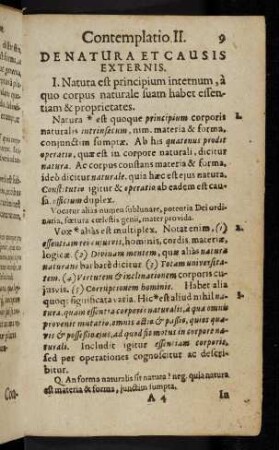 Contemplatio II. 9
DE NATURA ET CAUSIS
EXTERNIS.
I. Natura est principium internum, à
quo corpus naturale suam habet essen-
tiam & proprietates.
Natura * est quoque principium corporis 1.
naturalis intrinsecum, nim. materia & forma,
conjunctim sumptæ. Ab his quatenus prodit
operatio, quæ est in corpore naturali, dicitur
natura. Ac corpus constans materia & forma,
ideò dicitur naturale. quia hæc est ejus natura.
Constitutio igitur & operatio ab eadem est cau-
sa. officium duplex.
Vocatur aliàs numen sublunare, potentia Dei ordi-
naria, fœtura cœlestis genii, mater provida.
Vox * aliàs est multiplex. Notat enim, (1) 2.
essentiam rei cujusvis, hominis, cordis, materiæ,
logicæ. (2) Divinam mentem, quæ aliàs natura
naturans barbarè dicitur. (3) Totam universita-
tem. (4) Virtutem & inclinationem corporis cu-
jusvis. (5) Corruptionem hominis. Habet alia
quoq; significata varia. Hîc * est aliud nihil na- 3.
tura, quàm essentia corporis naturalis, à qua omnis
provenit mutatio, omnis actio & passio, quies qua-
vis & possessio ejus, ad quod fit motus in corpore na-
turali. Includit igitur essentiam corporis,
sed per operationes cognoscitur ac descri-
bitur.
Q. An forma naturalis sit natura? neg. quia natura
est materia & forma, junctim sumpta.
A 4 In
Con-